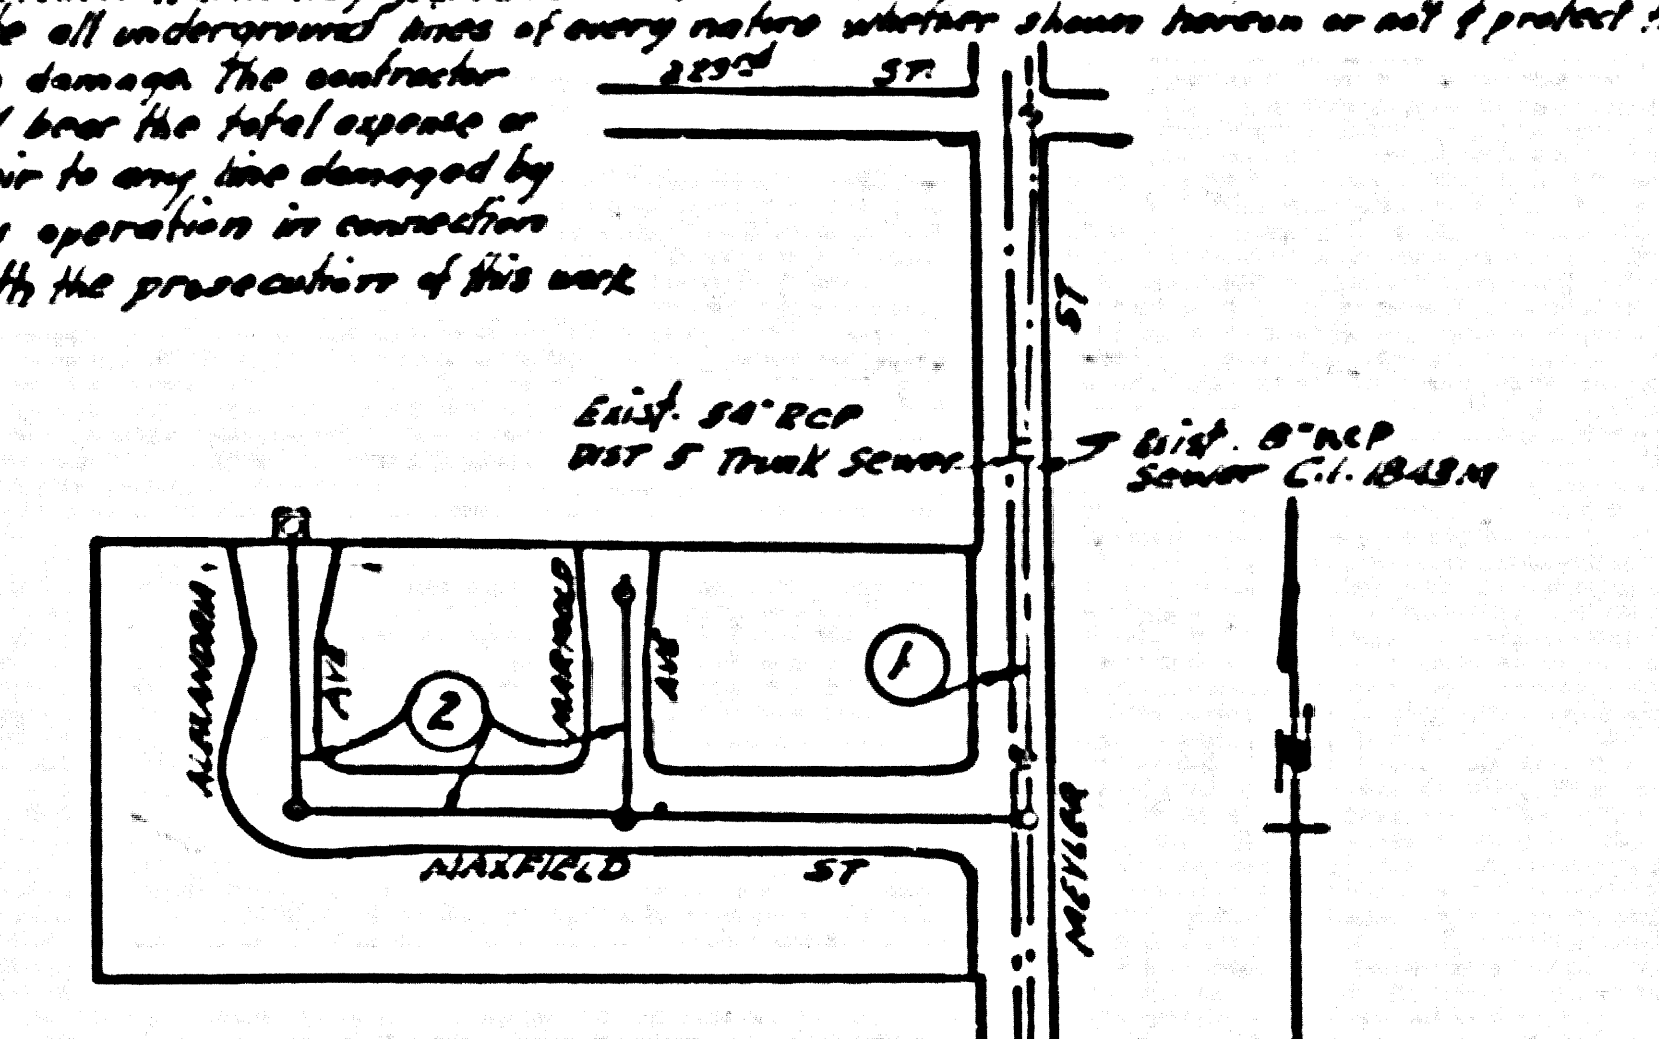 all underground lines of every nature whether shown hereon or not & protect
damage. The contractor
bear the total expense or
to any line damaged by
operation in connection
the prosecution of this work
223rd ST.
ST
Exist. 54" RCP
DIST 5 Trunk Sewer
Exist. 8"
Sewer C.I. 1843.M
AVE
MARIGOLD
AVE
1
2
MAXFIELD ST
MEYLER